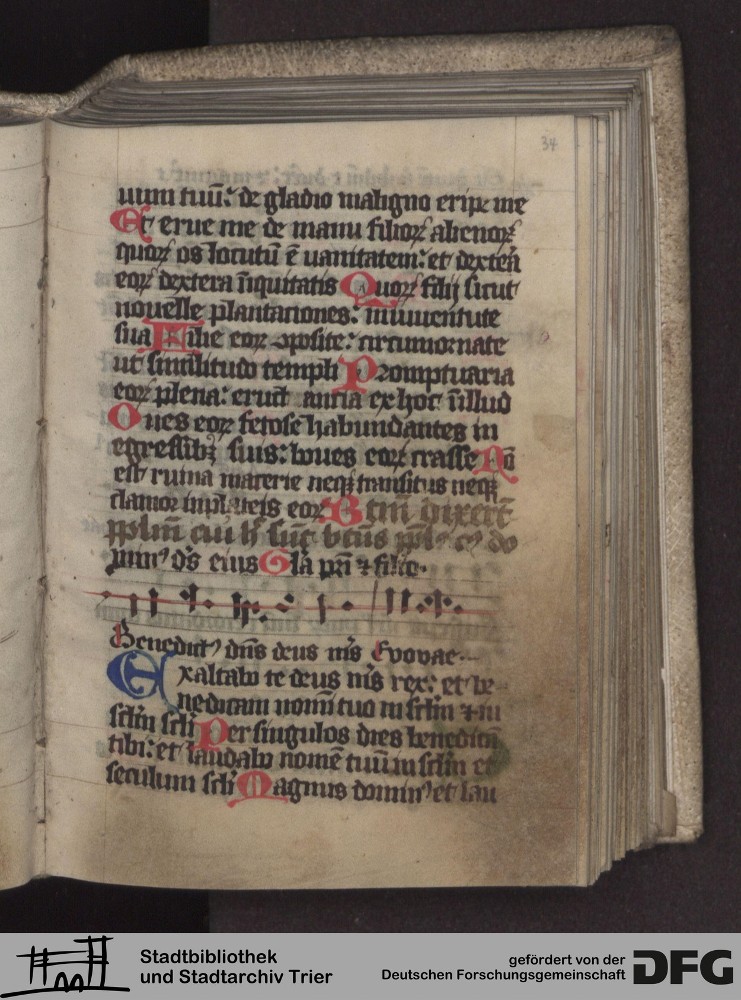 34
uum tuū: de gladio maligno eripe me
Et erue me de manu filioꝝ alienoꝝ
quoꝝ os locutū ē uanitatem: et dextera
eoꝝ dextera iniquitatis Quoꝝ filij sicut
nouelle plantationes: in iuuentute
sua Filie eoꝝ ꝯposite: circumornate
ut similitudo templi Promptuaria
eoꝝ plena: eructātia ex hoc in illud
Oues eoꝝ fetose habundantes in
egressibꝫ suis: boues eoꝝ crasse Nō
est ruina macerie neqꝫ transitus neqꝫ
clamor in plateis eoꝝ Btm̄ dixerūt
ppl̄m cui h̄ sūt: btus ppl̄s cꝰ do
minꝰ dꝰs eius Glā pr̄i ⁊ filio.
Benedictꝰ dn̄s deus nr̄s Evovae
Exaltabo te deus mꝰs rex: et be-
nedicam nomī tuo in sclm̄ ⁊ in
sclm̄ scli Per singulos dies benedicā
tibi: et laudabo nomē tuū in sclm̄ et
seculum scli Magnus dominꝰ et lau
Stadtbibliothek
und Stadtarchiv Trier
gefördert von der
Deutschen Forschungsgemeinschaft
DFG